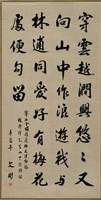 穿雲越澗興悠々又
向山中作浪遊我与
林逋同愛好有梅花
處便勾留